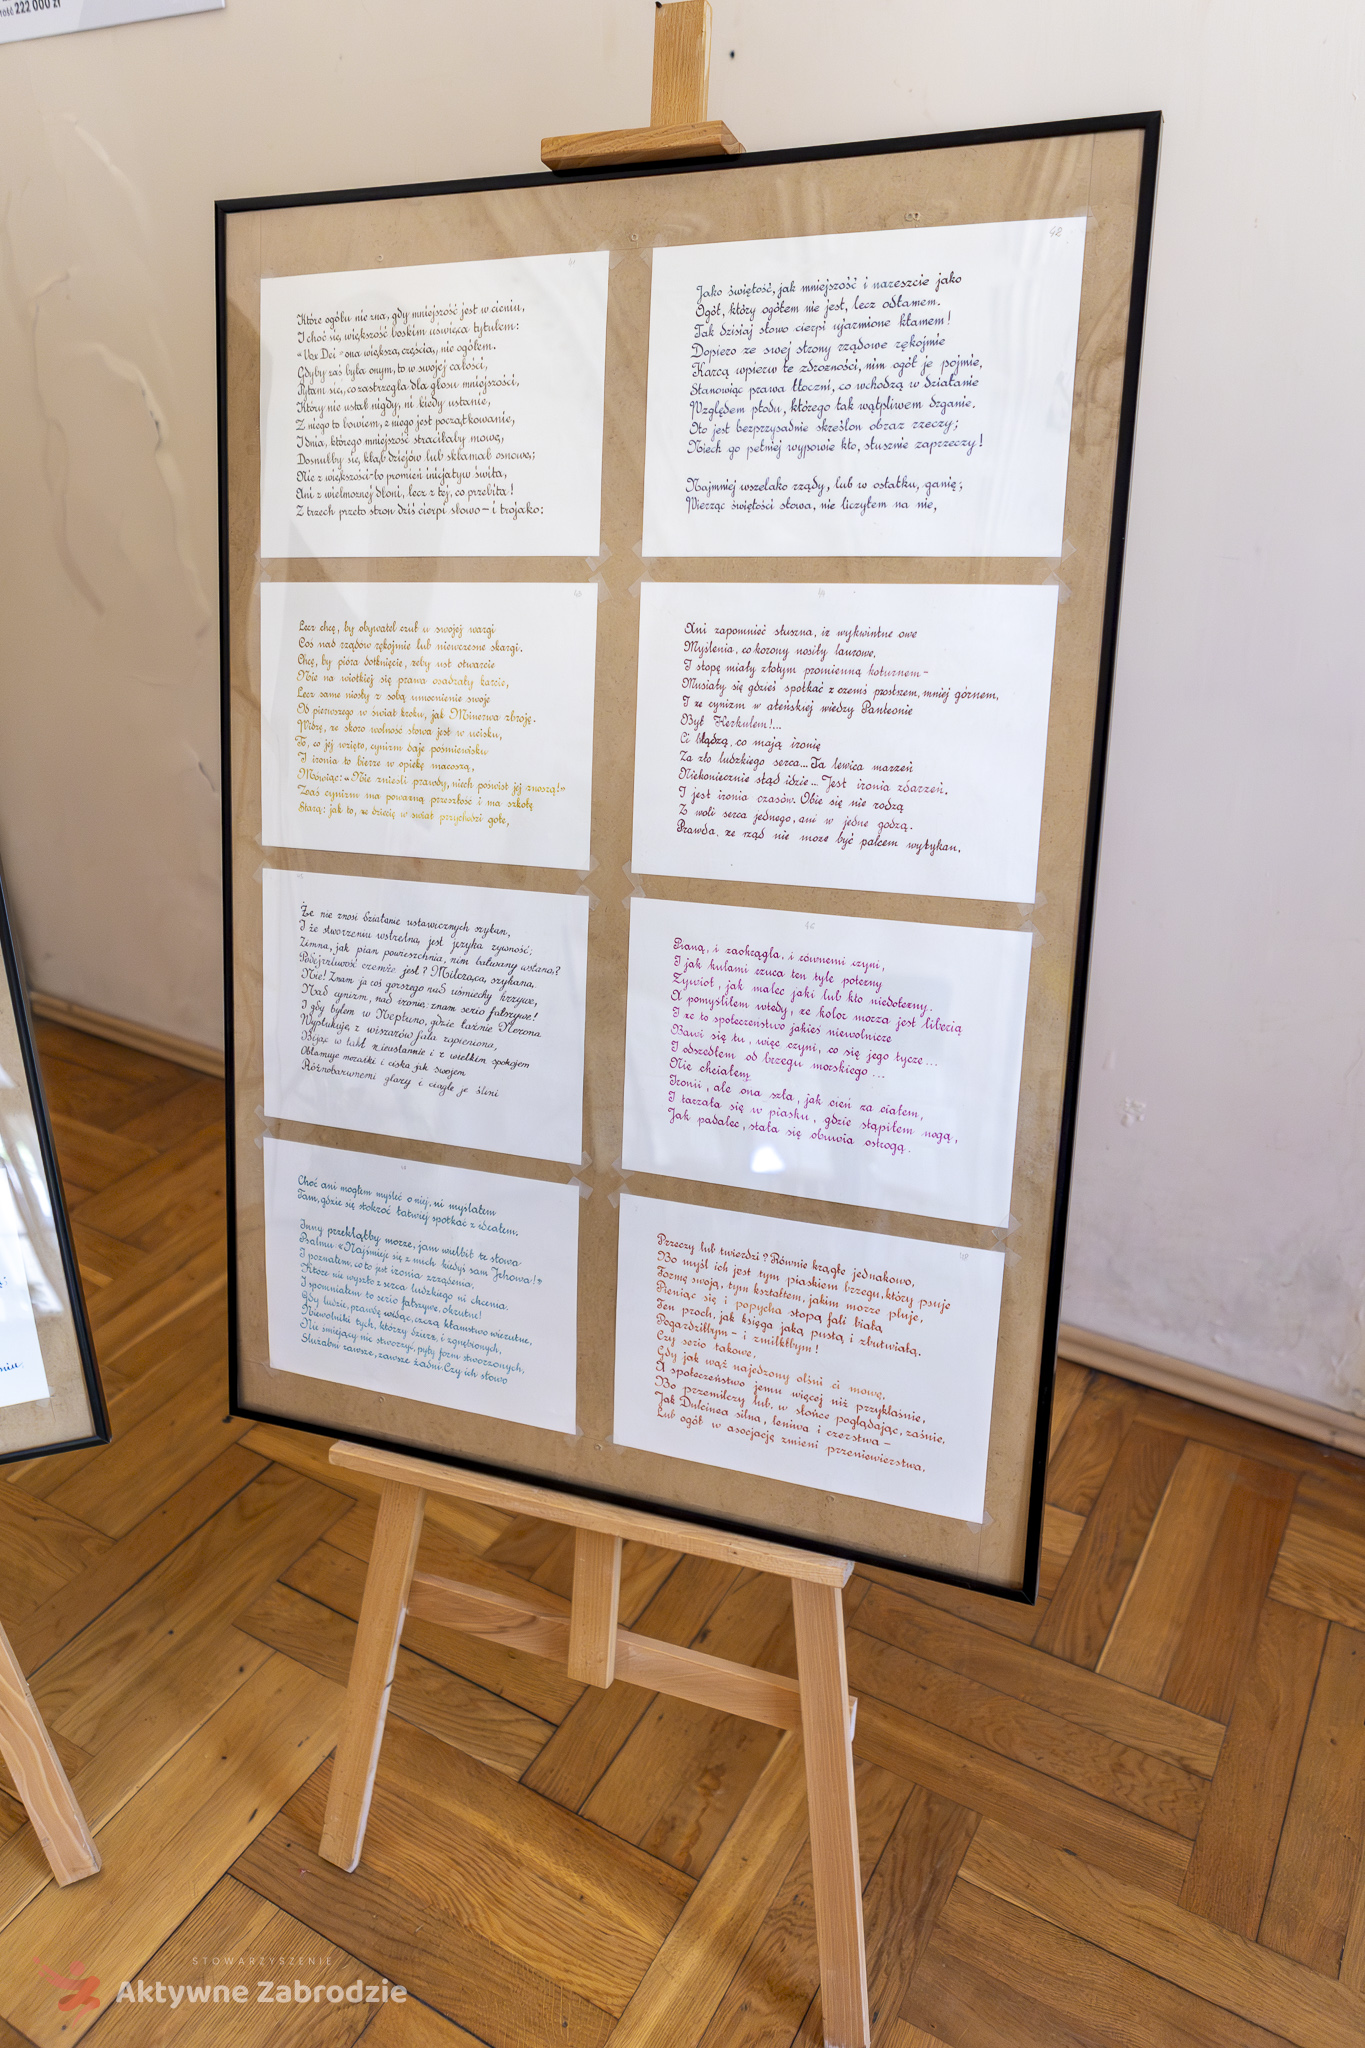 222 000 zł
41
Które ogółu nie zna, gdy mniejszość jest w cieniu,
I choć się, większość boskim uświęca tytułem:
"Vox Dei" ona większą częścią, nie ogółem.
Gdyby zaś była onym, to w swojej całości,
Pytam się, co zastrzegła dla głosu mniejszości,
Który nie ustał nigdy, ni kiedy ustanie,
Z niego to bowiem, z niego jest początkowanie,
I dnia, którego mniejszość straciłaby mowę,
Dosnułby się, kłąb dziejów lub skłamał osnowę;
Nie z większości-to promień inicjatyw świta,
Ani z wielmożnej dłoni, lecz z tej, co przebita!
Z trzech przeto stron dziś cierpi słowo – i trojako:
42
Jako świętość, jak mniejszość i nareszcie jako
Ogół, który ogółem nie jest, lecz odłamem.
Tak dzisiaj słowo cierpi ujarzmione kłamem!
Dopiero ze swej strony rządowe rękojmie
Karcą wpierw te zdrożności, nim ogół je pojmie,
Stanowiąc prawa tłoczni, co wchodzą w działanie
Względem płodu, którego tak wątpliwem drganie.
Oto jest bezprzysadnie skreślon obraz rzeczy;
Niech go pełniej wypowie kto, słusznie zaprzeczy!
Najmniej wszelako rządy, lub w ostatku, ganię;
Wierząc świętości słowa, nie liczyłem na nie,
43
Lecz chcę, by obywatel czuł u swojej wargi
Coś nad rządów rękojmie lub niewczesne skargi.
Chcę, by pióra dotknięcie, żeby ust otwarcie
Nie na wiotkiej się prawa osadzały karcie,
Lecz same niosły z sobą umocnienie swoje
Od pierwszego w świat kroku, jak Minerwa zbroję.
Widzę, że skoro wolność słowa jest w ucisku,
To, co jej wzięto, cynizm daje pośmiewisku
I ironia to bierze w opiekę macoszą,
Mówiąc: «Nie znieśli prawdy, niech poświst jej znoszą!»
Zaś cynizm ma poważną przeszłość i ma szkołę
Starą: jak to, że dziecię w świat przychodzi gołe,
44
Ani zapomnieć słuszna, iż wykwintne owe
Myślenia, co korony nosiły laurowe,
I stopę miały złotym promienną koturnem –
Musiały się gdzieś spotkać z czemś prostszem, mniej górnem,
I że cynizm w ateńskiej wiedzy Panteonie
Był Herkulem!...
Ci błądzą, co mają ironię
Za zło ludzkiego serca... Ta lewica marzeń
Niekoniecznie stąd idzie... Jest ironia zdarzeń.
I jest ironia czasów. Obie się nie rodzą
Z woli serca jednego, ani w jedne godzą.
Prawda, że rząd nie może być palcem wytykan.
45
Że nie znosi działanie ustawicznych szykan,
I że stworzeniu wstrętną jest języka żywność;
Zimna, jak pian powierzchnia, nim bałwany wstaną?
Podejrzliwość czemże jest? Milczącą, szykaną.
Nie! Znam ja coś gorszego nad uśmiechy krzywe,
Nad cynizm, nad ironię: znam serio fałszywe!
I gdy byłem w Neptuno, gdzie łaźnie Nerona
Wypłukuje z wiszarów fala zapieniona,
Bijąc w takt nieustannie i z wielkim spokojem
Obłamuje mozaiki i ciska jak swojem
Różnobarwnemi głazy i ciągle je ślini
46
Pianą, i zaokrągla, i równemi czyni,
I jak kulami rzuca ten tyle potężny
Żywioł, jak malec jaki lub kto niedołężny.
A pomyśliłem wtedy, że kolor morza jest liberią
I że to społeczeństwo jakieś niewolnicze
Bawi się tu, więc czyni, co się jego tycze...
I odszedłem od brzegu morskiego...
Nie chciałem
Ironii, ale ona szła, jak cień za ciałem,
I tarzała się w piasku, gdzie stąpiłem nogą,
Jak padalec, stała się obuwia ostrogą.
Choć ani mogłem myśleć o niej, ni myślałem
Tam, gdzie się stokroć łatwiej spotkać z ideałem.
Inny przekląłby morze, jam wielbił te słowa
Psalmu «Najśmieje się z nich kiedyś sam Jehowa!»
I poznałem, co to jest ironia zrządzenia,
Które nie wyszło z serca ludzkiego ni chcenia,
I spomniałem to serio fałszywe, okrutne!
Gdy ludzie, prawdę widząc, czczą kłamstwo wierutne,
Niewolniki tych, którzy dzierżą, i zgnębionych,
Nic śmiejący nie stworzyć, pyły form stworzonych,
Służebni zawsze, zawsze żadni. Czy ich słowo
48
Przeczy lub twierdzi? Równie krągłe jednakowo,
Bo myśl ich jest tym piaskiem brzegu, który psuje
Formę swoją, tym kształtem, jakim morze pluje,
Pieniąc się i popycha stopą fali białą
Ten proch, jak księga jaką pustą i zbutwiałą.
Pogardziłbym – i zmilkłbym!
Czy serio takowe,
Gdy jak wąż najedzony olśni ci mowę,
A społeczeństwo jemu więcej niż przyklaśnie,
Bo przemilczy lub, w słońce poglądając, zaśnie,
Jak Dulcinea silna, leniwa i czerstwa –
Lub ogół w asocjację zmieni przeniewierstwa.
STOWARZYSZENIE
Aktywne Zabrodzie